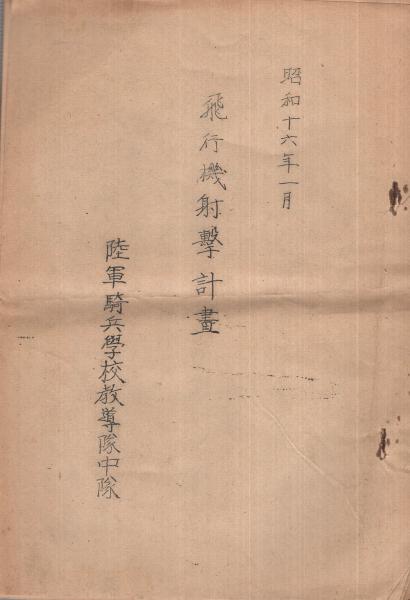 昭和十六年一月
飛行機射擊計畫
陸軍騎兵學校教導隊中隊